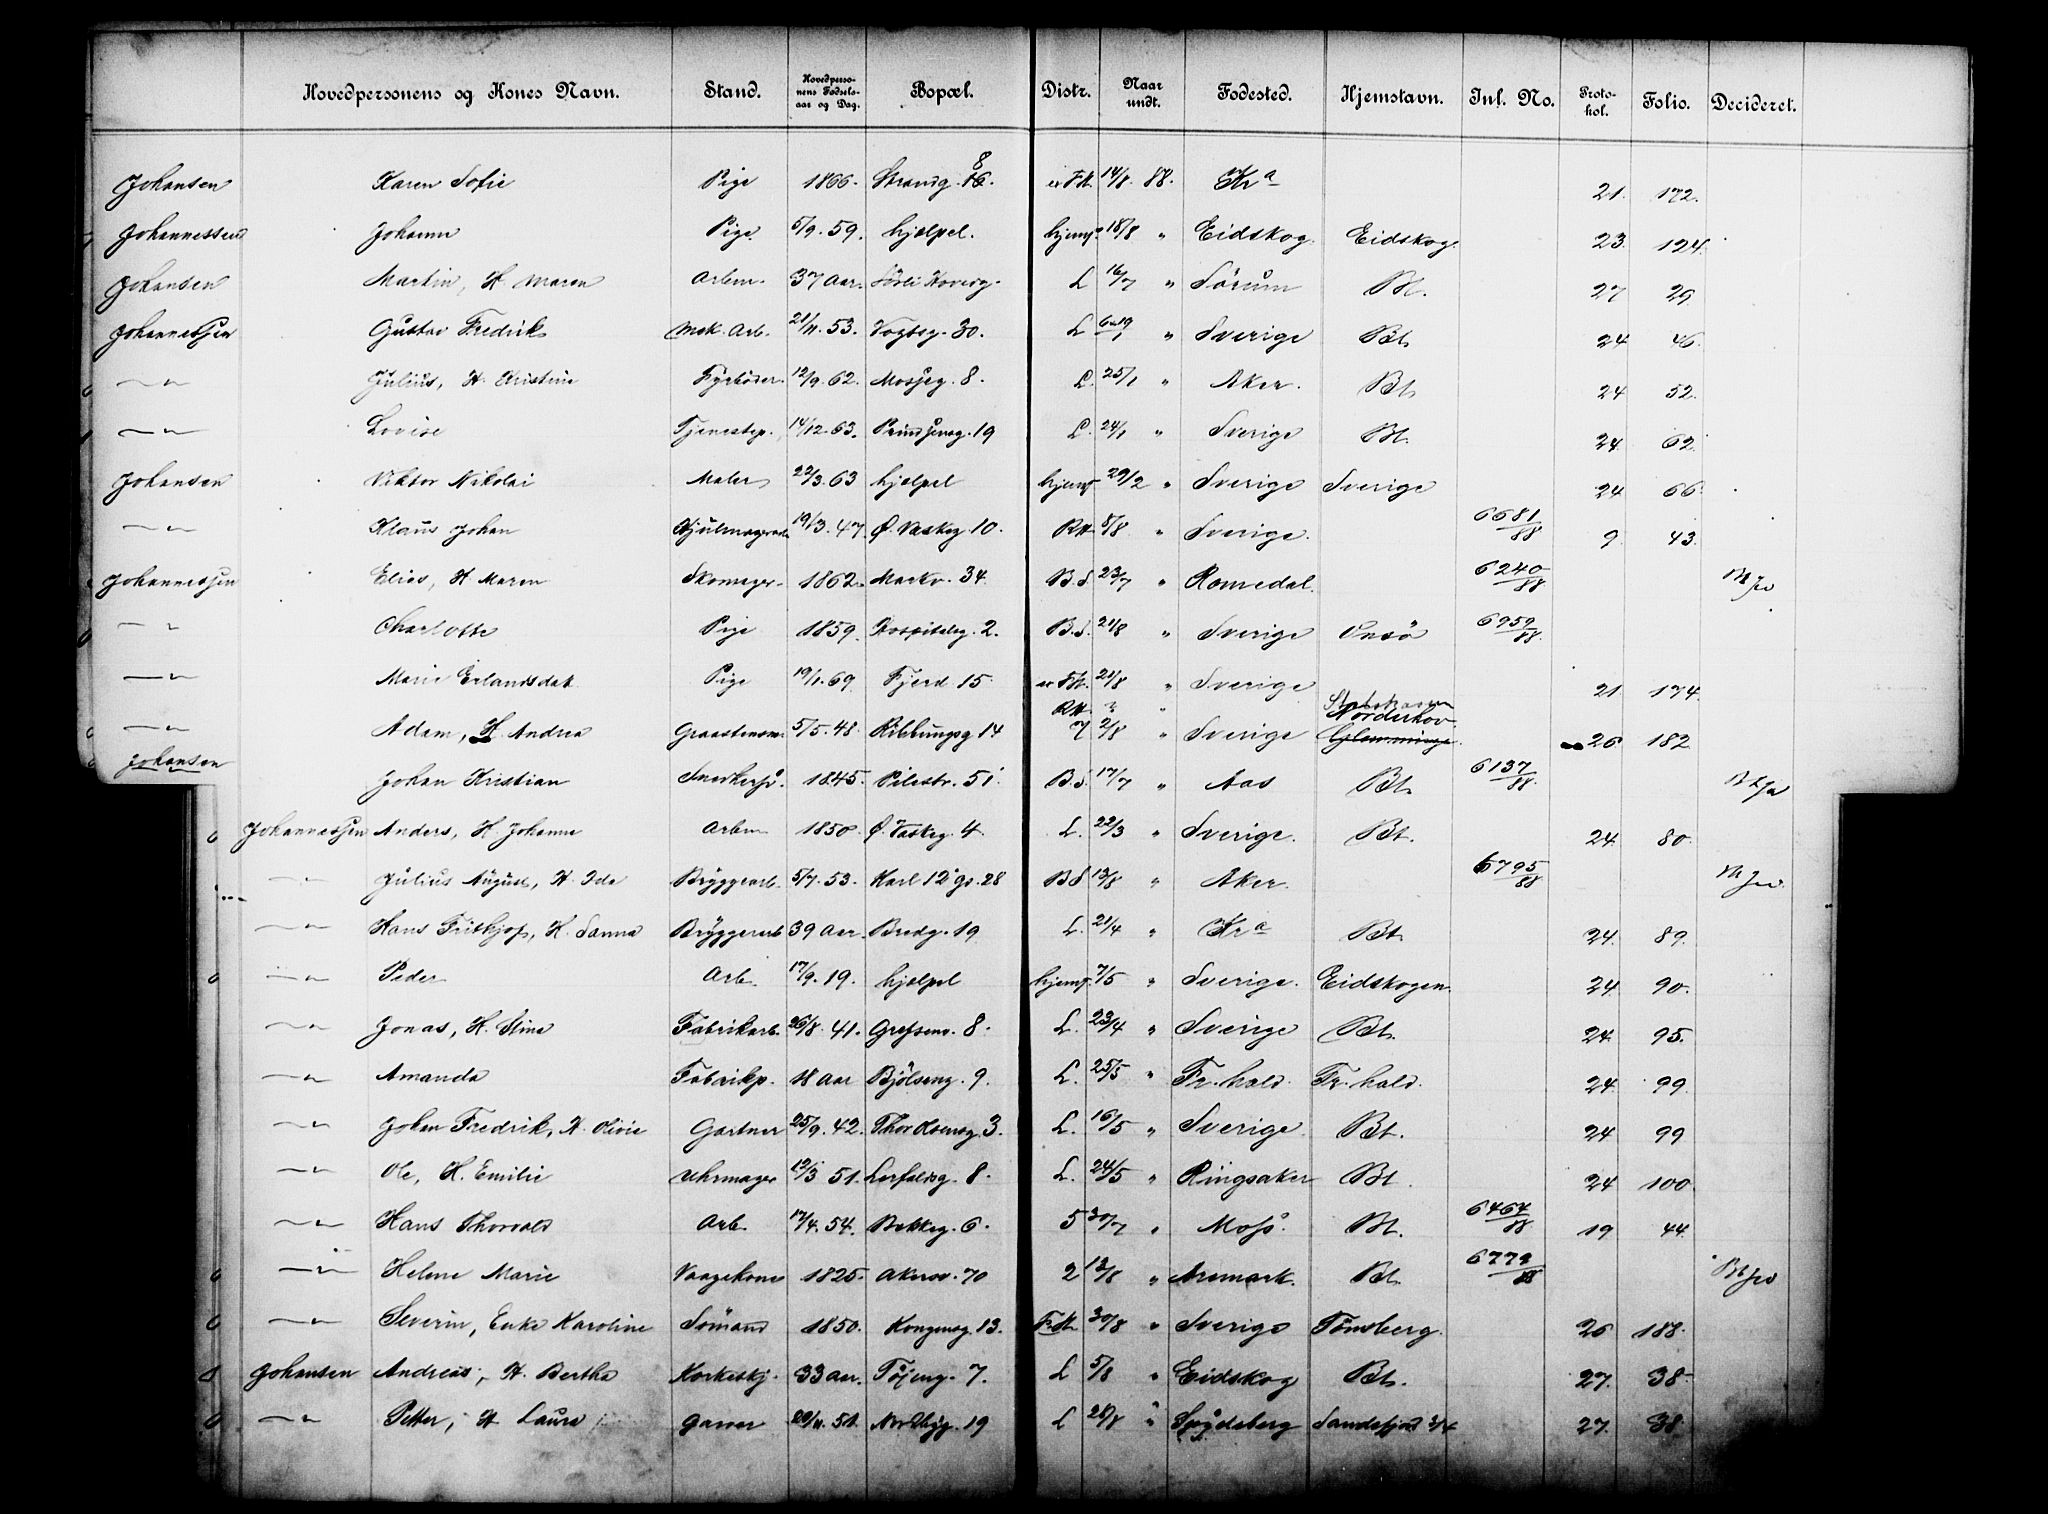 Hovedpersonens og Kones Navn. Stand. Hovedpersonens Fødselsaar og Dag. Bopæl. Distr. Naar undt. Fødested. Hjemstavn. Inf. No. Protokol. Folio. Decideret.
Johansen Karen Sofie Pige 1866. Strandg. 8 14/8 88. Kra 21. 172.
Johannessen Johanne Pige 5/9. 59. hjælpel. hjemf. 18/8 " Eidskog. Eidskog. 23. 124.
Johansen Martin, H. Maren Arbm. 37 Aar. L 16/7 " Sørum Bt. 27 29
Johannessen Gustav Fredrik Mek. Arb. 21/11. 53. Vogtsg. 30. L " Sverige Bt. 24 46.
—"— Julius, H. Kristine Fyrbøder. 12/9. 62. Mosseg. 8. L. 25/1 " Aker. Bt. 24 52.
—"— Lovise Tjenestep. 14/12. 63. Prindsensg. 19 L. 24/1 " Sverige Bt. 24 62.
Johansen Viktor Nikolai Maler 22/3. 63 hjælpel hjemf. 29/2 " Sverige Sverige 24 66.
—"— Klaus Johan Hjulmagersv. 19/3. 47. Ø. Vaskeg. 10. 8/8 " Sverige. 6681/88 9. 43.
Johannessen Elias, H. Maren Skomager. 1862. Markv. 34. B.S. 23/7 " Romedal. 6240/88
—"— Charlotte Pige 1859. Hospitalsg. 2. B.S. 21/8 " Sverige Onsø 6959/88.
—"— Marie Erlandsdat. Pige 19/1. 69. Fjerd 15. 21/8 " Sverige 21 174.
—"— Adam, H. Andrea Graastensm. 5/5. 48. Ribbungsg 14 7 2/8 " Sverige Statskassen Norderhov. Glemminge. 26 182.
Johansen Johan Kristian Snedkersv. 1845. Pilestr. 51. B.S. 17/7 " Aas Bt. 6137/88.
Johannessen Anders, H. Johanne Arbm 1850. Ø. Vaskeg. 4. L. 22/3 " Sverige. Bt. 24. 80.
—"— Julius August, H. Ida Bryggearb. 5/7. 53. Karl 12' gd. 28 B.S 13/8 " Aker. 6795/88
—"— Hans Frithjof, H. Sanna Bryggerarb 39 Aar. Bredg. 19 L. 21/4 " Kra Bt. 24. 89.
—"— Peder Arb. 17/9. 19. hjælpel hjemf. 7/5 " Sverige. Eidskogen. 24. 90.
—"— Jonas, H. Stina Fabrikarb. 26/8. 41. Grefsenv. 8. L. 23/4 " Sverige Bt. 24. 95.
—"— Amanda Fabrikp. 18 Aar Bjølseng. 9. L. 25/5 " Fr. hald. Fr. hald. 24. 99.
—"— Johan Fredrik, H. Olivie Gartner 25/9. 42. Thor Olsensg. 3. L. 16/5 " Sverige. Bt. 24 99
—"— Ole, H. Emilie Uhrmager 12/3 51. Lerfaldsg. 8. L. 24/5 " Ringsaker Bt. 24 100.
—"— Hans Thorvald Arb. 17/4. 54. Bakkeg. 6. 5 30/7 " Moss. Bt. 6464/88 19 44.
—"— Helene Marie Vaagekone 1825. Akersv. 70 2 13/8 " Aremark. Bt. 6779/88
—"— Severin, Enke Karoline Sømand 1850. Kongensg. 13. F.K. 30/8 " Sverige Tønsberg. 26 188.
Johansen Andreas, H. Bertha Korkeskj. 33 Aar. Tøieng. 7. L 5/8 " Eidskog Bt. 27. 38.
—"— Petter, H. Laura Garver 51. Nordbyg. 19 L 28/8 " Spydeberg Sandefjord 3/4 27. 38.